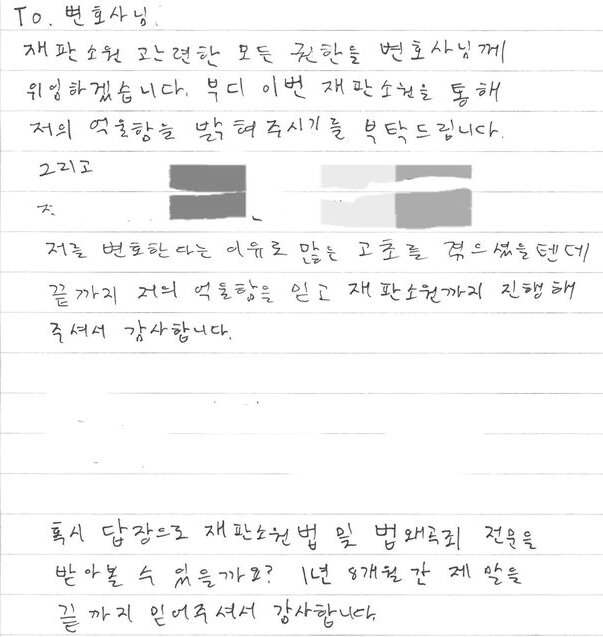 To. 변호사님.
재판소원 고는련한 모든 권한을 변호사님께
위임하겠습니다. 부디 이번 재판소원을 통해
저의 억울함을 밝혀주시기를 부탁드립니다.
그리고
저를 변호한다는 이유로 많은 고초를 겪으셨을텐데
끝까지 저의 억울함을 믿고 재판소원까지 진행해
주셔서 감사합니다.
혹시 답장으로 재판소원법 및 법왜곡죄 전문을
받아볼 수 있을까요? 1년 8개월 간 제 말을
끝까지 믿어주셔서 감사합니다.